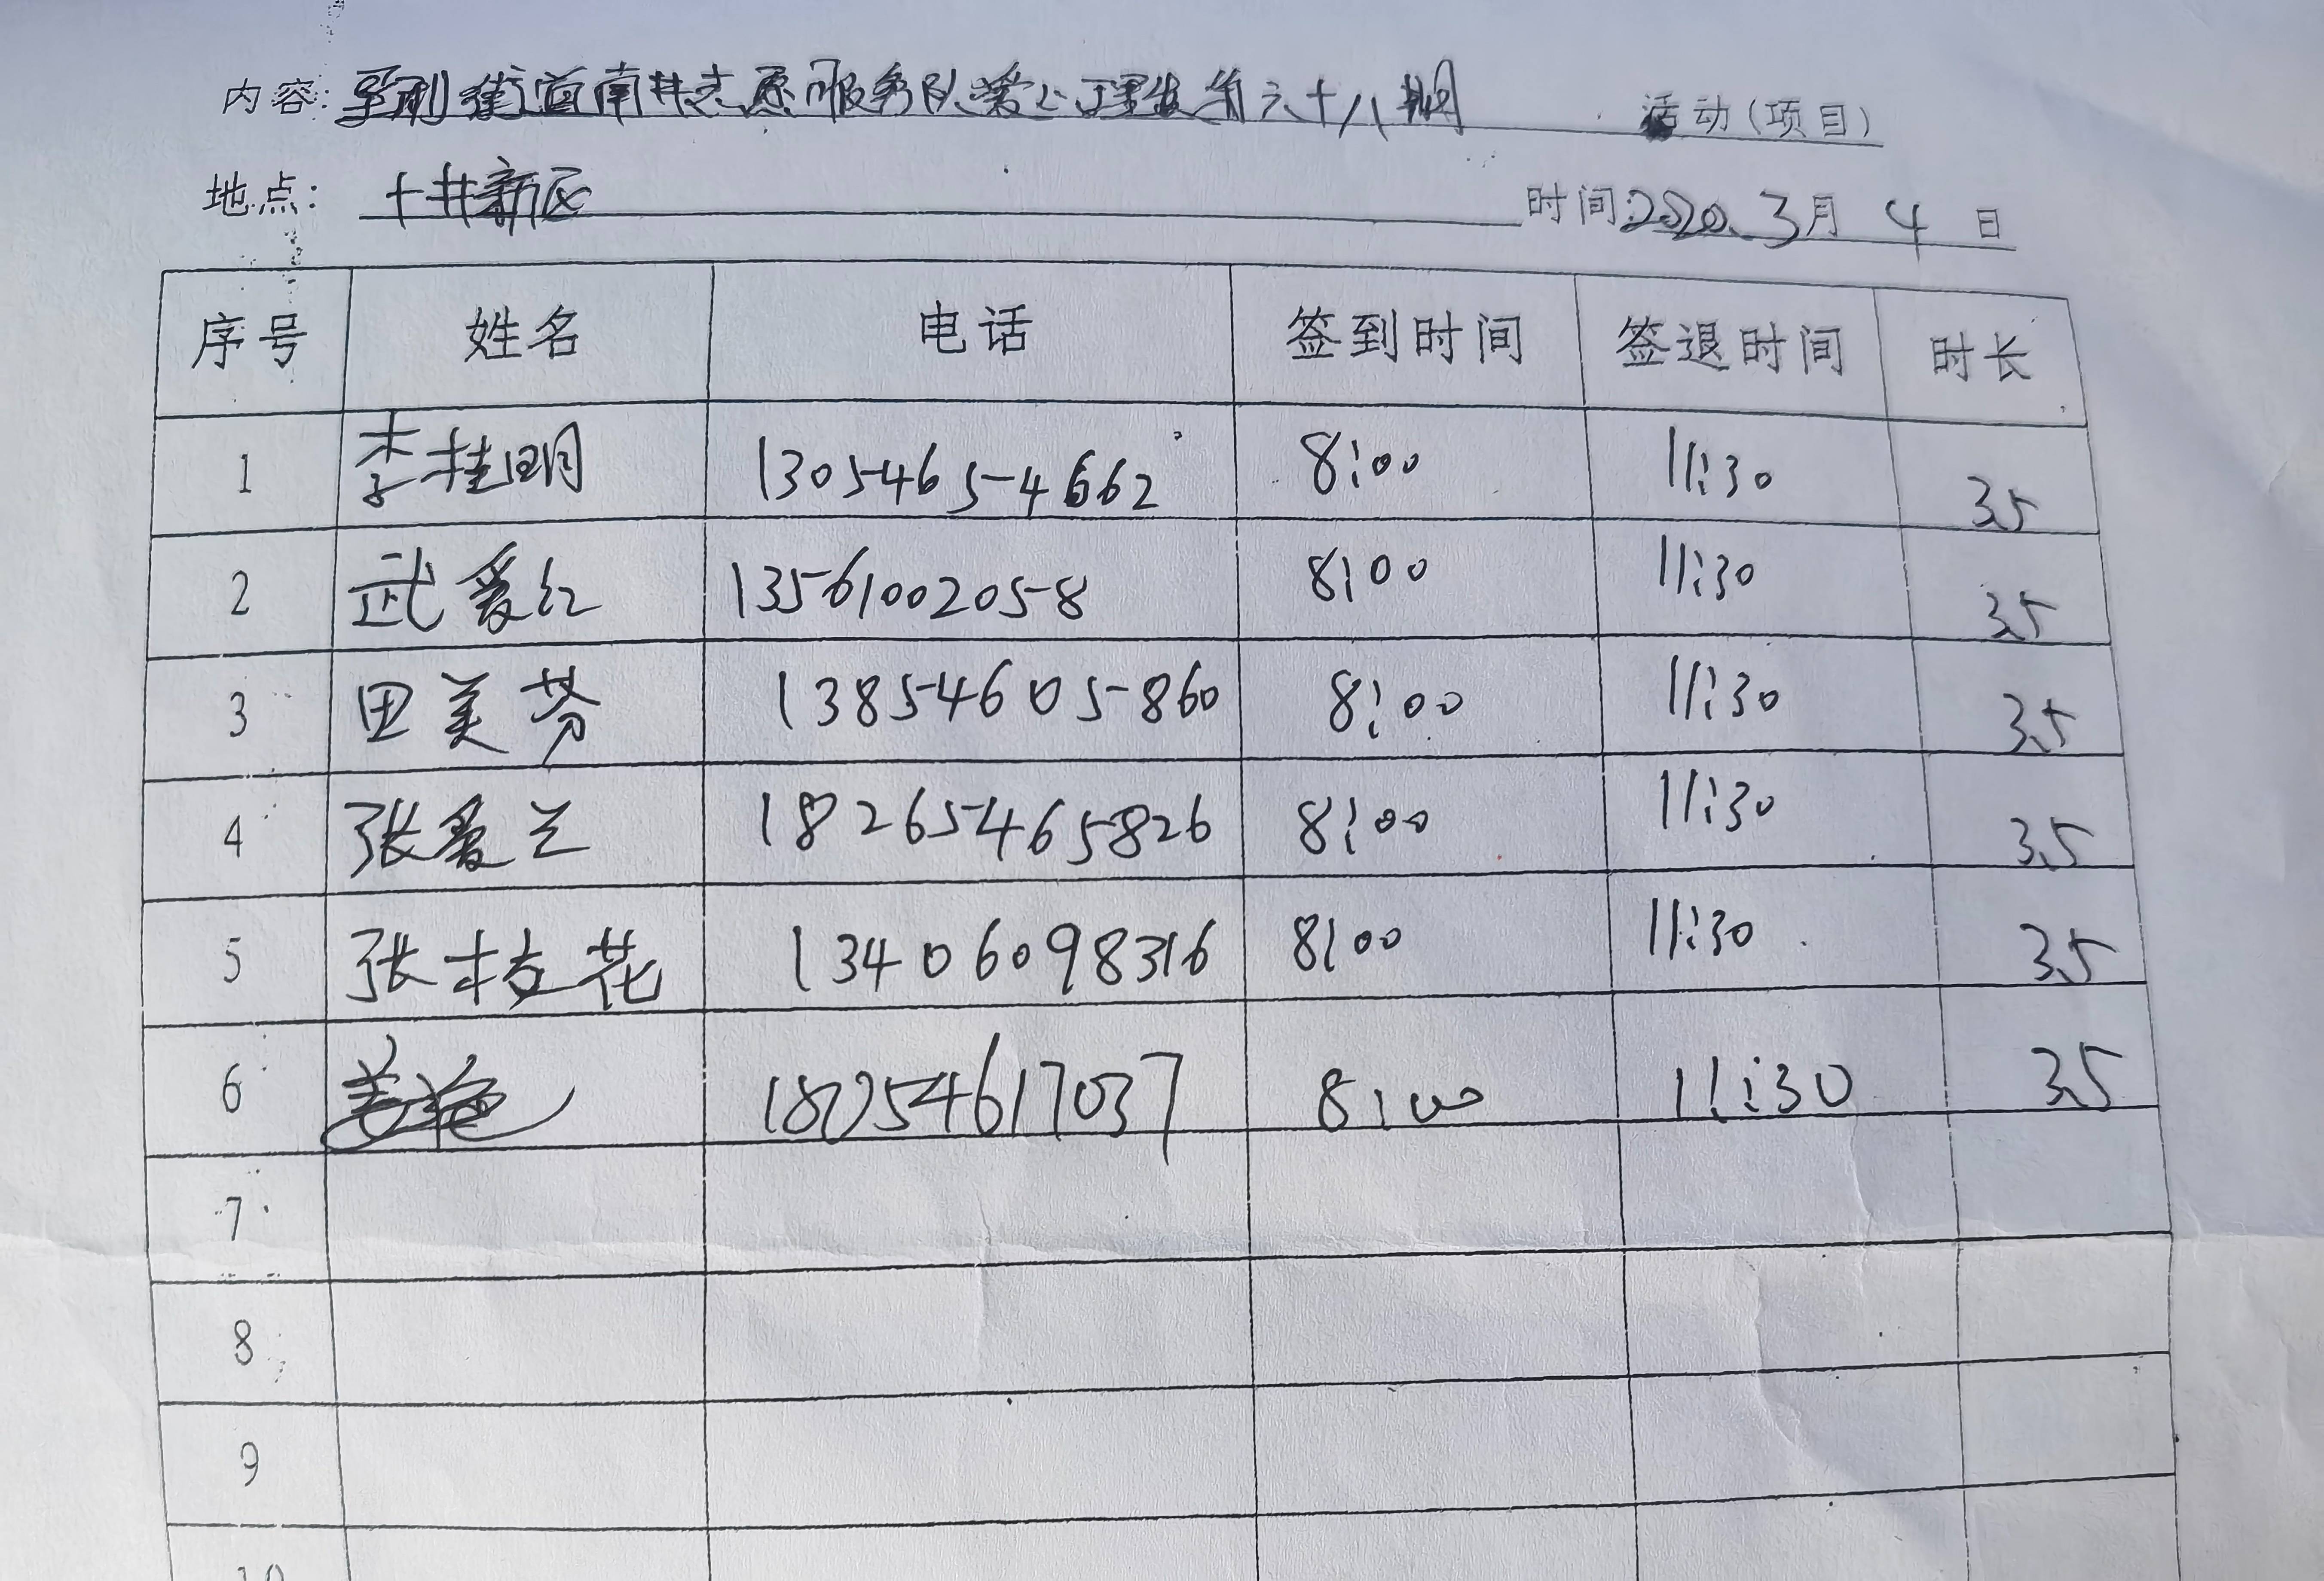 内容: 街道南井志愿服务队爱心理发第六十八期 活动(项目)
地点: 十井新区 时间:2020.3月4日
序号 姓名 电话 签到时间 签退时间 时长
1 李桂明 13054654662 8:00 11:30 3.5
2 武爱红 13561002058 8:00 11:30 3.5
3 田美芬 13854605860 8:00 11:30 3.5
4 张爱兰 18265465826 8:00 11:30 3.5
5 张枝花 13406098316 8:00 11:30 3.5
6 54617037 8:00 11:30 3.5
7
8
9
10